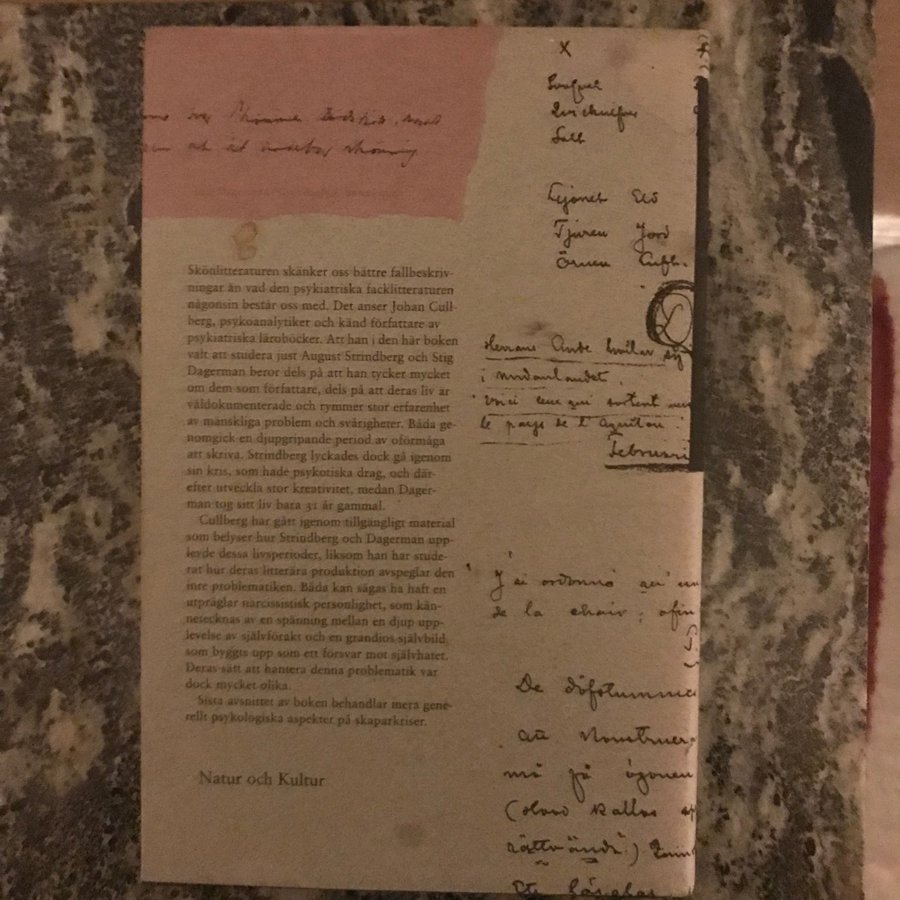 Skönlitteraturen skänker oss bättre fallbeskriv-
ningar än vad den psykiatriska facklitteraturen
någonsin består oss med. Det anser Johan Cull-
berg, psykoanalytiker och känd författare av
psykiatriska läroböcker. Att han i den här boken
valt att studera just August Strindberg och Stig
Dagerman beror dels på att han tycker mycket
om dem som författare, dels på att deras liv är
väldokumenterade och rymmer stor erfarenhet
av mänskliga problem och svårigheter. Båda ge-
nomgick en djupgripande period av oförmåga
att skriva. Strindberg lyckades dock gå igenom
sin kris, som hade psykotiska drag, och där-
efter utveckla stor kreativitet, medan Dager-
man tog sitt liv bara 31 år gammal.
Cullberg har gått igenom tillgängligt material
som belyser hur Strindberg och Dagerman upp-
levde dessa livsperioder, liksom han har stude-
rat hur deras litterära produktion avspeglar den
inre problematiken. Båda kan sägas ha haft en
utpräglat narcissistisk personlighet, som kän-
netecknas av en spänning mellan en djup upp-
levelse av självförakt och en grandios självbild,
som byggts upp som ett försvar mot självhatet.
Deras sätt att hantera denna problematik var
dock mycket olika.
Sista avsnittet av boken behandlar mera gene-
rellt psykologiska aspekter på skaparkriser.
Natur och Kultur
x
Salt
Lejonet Eld
Tjuren Jord
Örnen Luft.
Herrans Ande hvilar
i nordanlandet.
Voici ceux qui sortent
le pays de l'Aquilon
Februari
J'ai ordonné qu'un
de la chair, afin
De döfstumma
må få ögonen
rättvända)